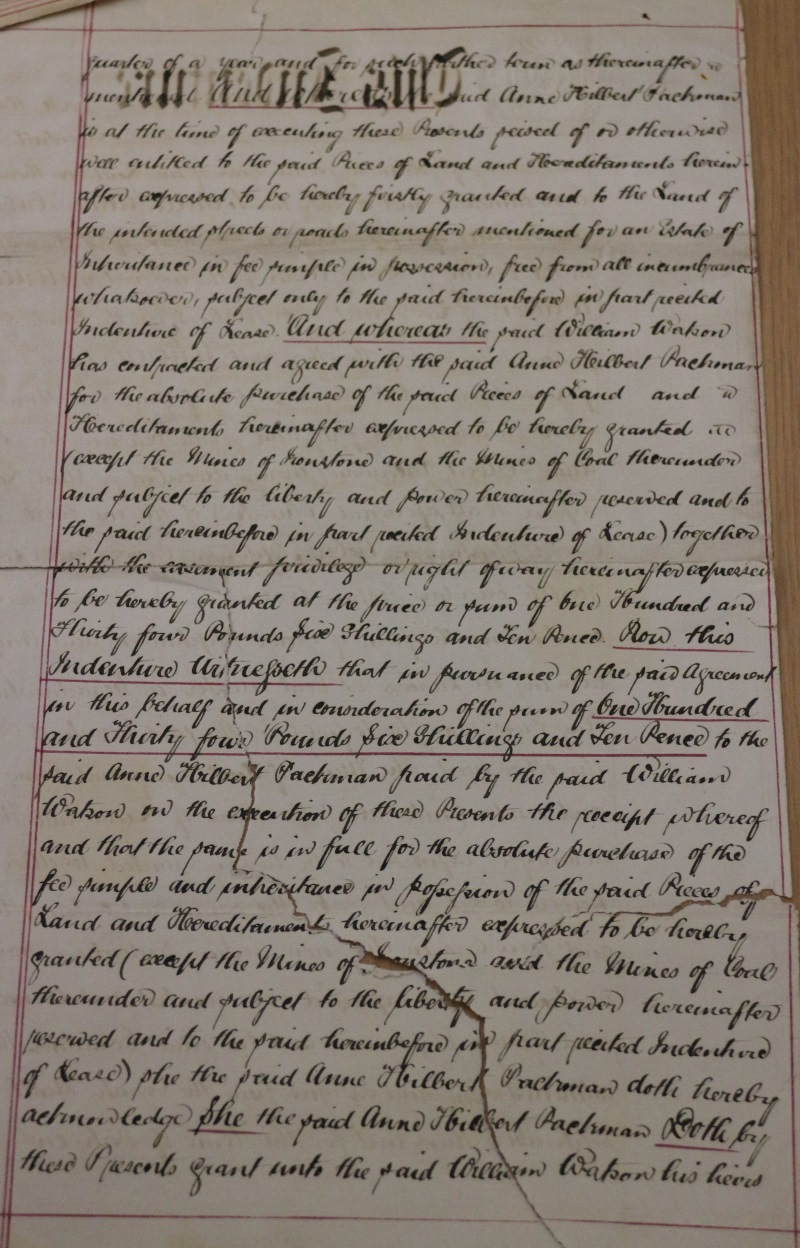 quarter of a year and for such other term as thereinafter is
said Anne Hilbert Packman
is at the time of executing these Presents seised of or otherwise
well entitled to the said Pieces of Land and Hereditaments herein-
after expressed to be hereby firstly granted and to the Land of
the intended streets or roads hereinafter mentioned for an Estate of
Inheritance in fee simple in possession, free from all incumbrances
whatsoever, subject only to the said hereinbefore in part recited
Indenture of Lease. And whereas the said William Watson
has contracted and agreed with the said Anne Hilbert Packman
for the absolute purchase of the said Pieces of Land and
Hereditaments hereinafter expressed to be hereby granted
(except the Mines of Ironstone and the Mines of Coal thereunder
and subject to the liberty and power hereinafter reserved and to
the said hereinbefore in part recited Indenture of Lease) together
with the easement privilege or right of way hereinafter expressed
to be hereby granted at the price or sum of One Hundred and
Thirty four Pounds Six Shillings and Ten Pence. Now this
Indenture Witnesseth that in pursuance of the said Agreement
in this behalf and in consideration of the sum of One Hundred
and Thirty four Pounds Six Shillings and Ten Pence to the
said Anne Hilbert Packman paid by the said William
Watson on the execution of these Presents the receipt whereof
and that the same is in full for the absolute purchase of the
fee simple and inheritance in possession of the said Pieces of
Land and Hereditaments hereinafter expressed to be hereby
granted (except the Mines of Ironstone and the Mines of Coal
thereunder and subject to the liberty and power hereinafter
reserved and to the said hereinbefore in part recited Indenture
of Lease) she the said Anne Hilbert Packman doth hereby
acknowledge She the said Anne Hilbert Packman Doth by
these Presents grant unto the said William Watson his heirs